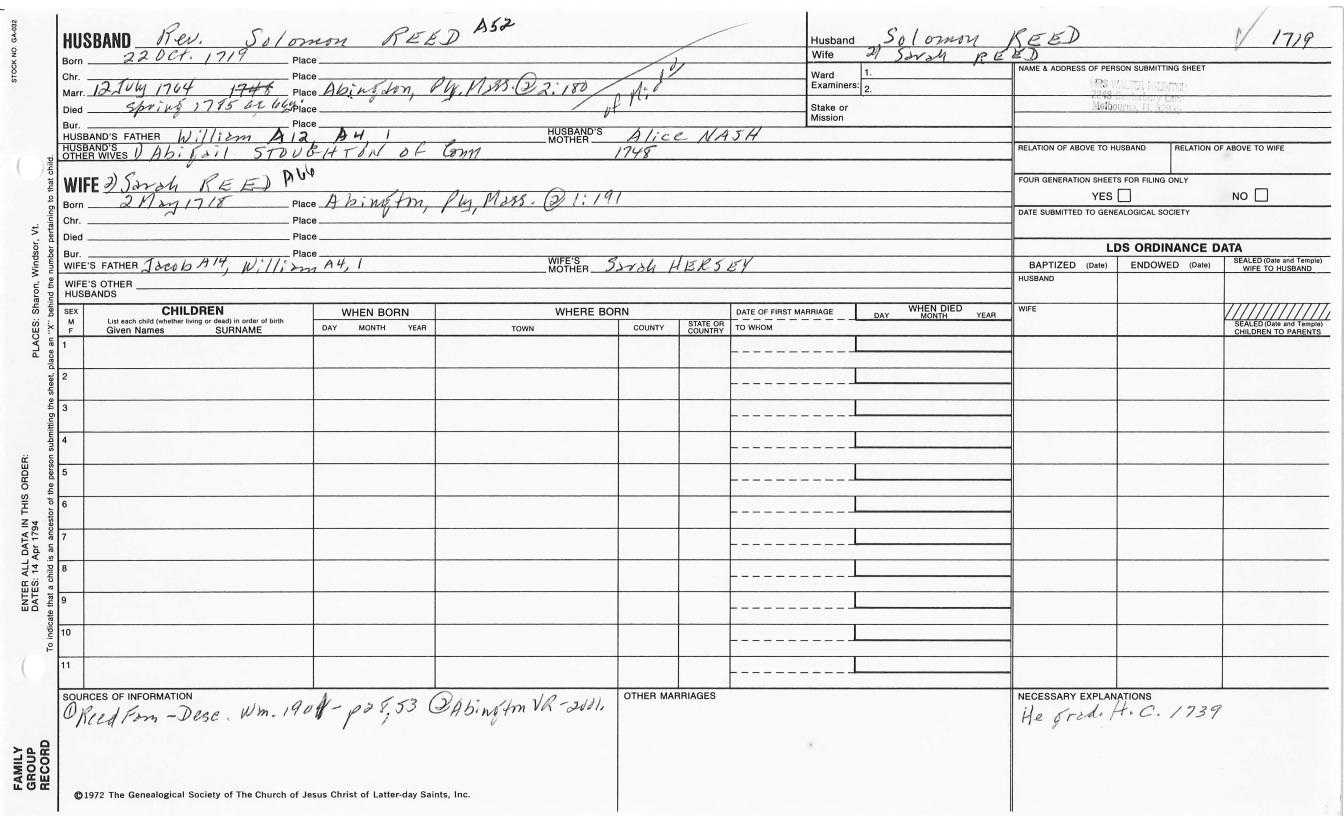 STOCK NO. GA-032
HUSBAND Rev. Solomon REED A52
Born 22 Oct. 1719 Place
Chr. Place
Marr. 12 July 1764 1748 Place Abington, Ply, Mass. @ 2:180
Died spring 1785 Place
Bur. Place
HUSBAND'S FATHER William A12 A4 1 HUSBAND'S MOTHER Alice NASH
HUSBAND'S OTHER WIVES 1) Abigail STOUGHTON of Conn 1748
WIFE 2) Sarah REED A66
Born 2 May 1718 Place Abington, Ply, Mass. @ 1:191
Chr. Place
Died Place
Bur. Place
WIFE'S FATHER Jacob A14, William A4, 1 WIFE'S MOTHER Sarah HERSEY
WIFE'S OTHER HUSBANDS
Husband Solomon REED 1719
Wife 2) Sarah REED
Ward Examiners: 1. 2.
Stake or Mission
NAME & ADDRESS OF PERSON SUBMITTING SHEET
Melbourne,
RELATION OF ABOVE TO HUSBAND RELATION OF ABOVE TO WIFE
FOUR GENERATION SHEETS FOR FILING ONLY
YES NO
DATE SUBMITTED TO GENEALOGICAL SOCIETY
LDS ORDINANCE DATA
BAPTIZED (Date) ENDOWED (Date) SEALED (Date and Temple) WIFE TO HUSBAND
HUSBAND
WIFE
SEALED (Date and Temple) CHILDREN TO PARENTS
SEX M F
CHILDREN
List each child (whether living or dead) in order of birth
Given Names SURNAME
WHEN BORN
DAY MONTH YEAR
WHERE BORN
TOWN COUNTY STATE OR COUNTRY
DATE OF FIRST MARRIAGE
TO WHOM
WHEN DIED
DAY MONTH YEAR
1
2
3
4
5
6
7
8
9
10
11
SOURCES OF INFORMATION
① Reed Fam - Desc. Wm. 1901 - p28, 53 ② Abington VR -
OTHER MARRIAGES
NECESSARY EXPLANATIONS
He grad. H.C. 1739
©1972 The Genealogical Society of The Church of Jesus Christ of Latter-day Saints, Inc.
PLACES: Sharon, Windsor, Vt.
To indicate that a child is an ancestor of the person submitting the sheet, place an "X" behind the number pertaining to that child.
ENTER ALL DATA IN THIS ORDER:
DATES: 14 Apr 1794
FAMILY GROUP RECORD